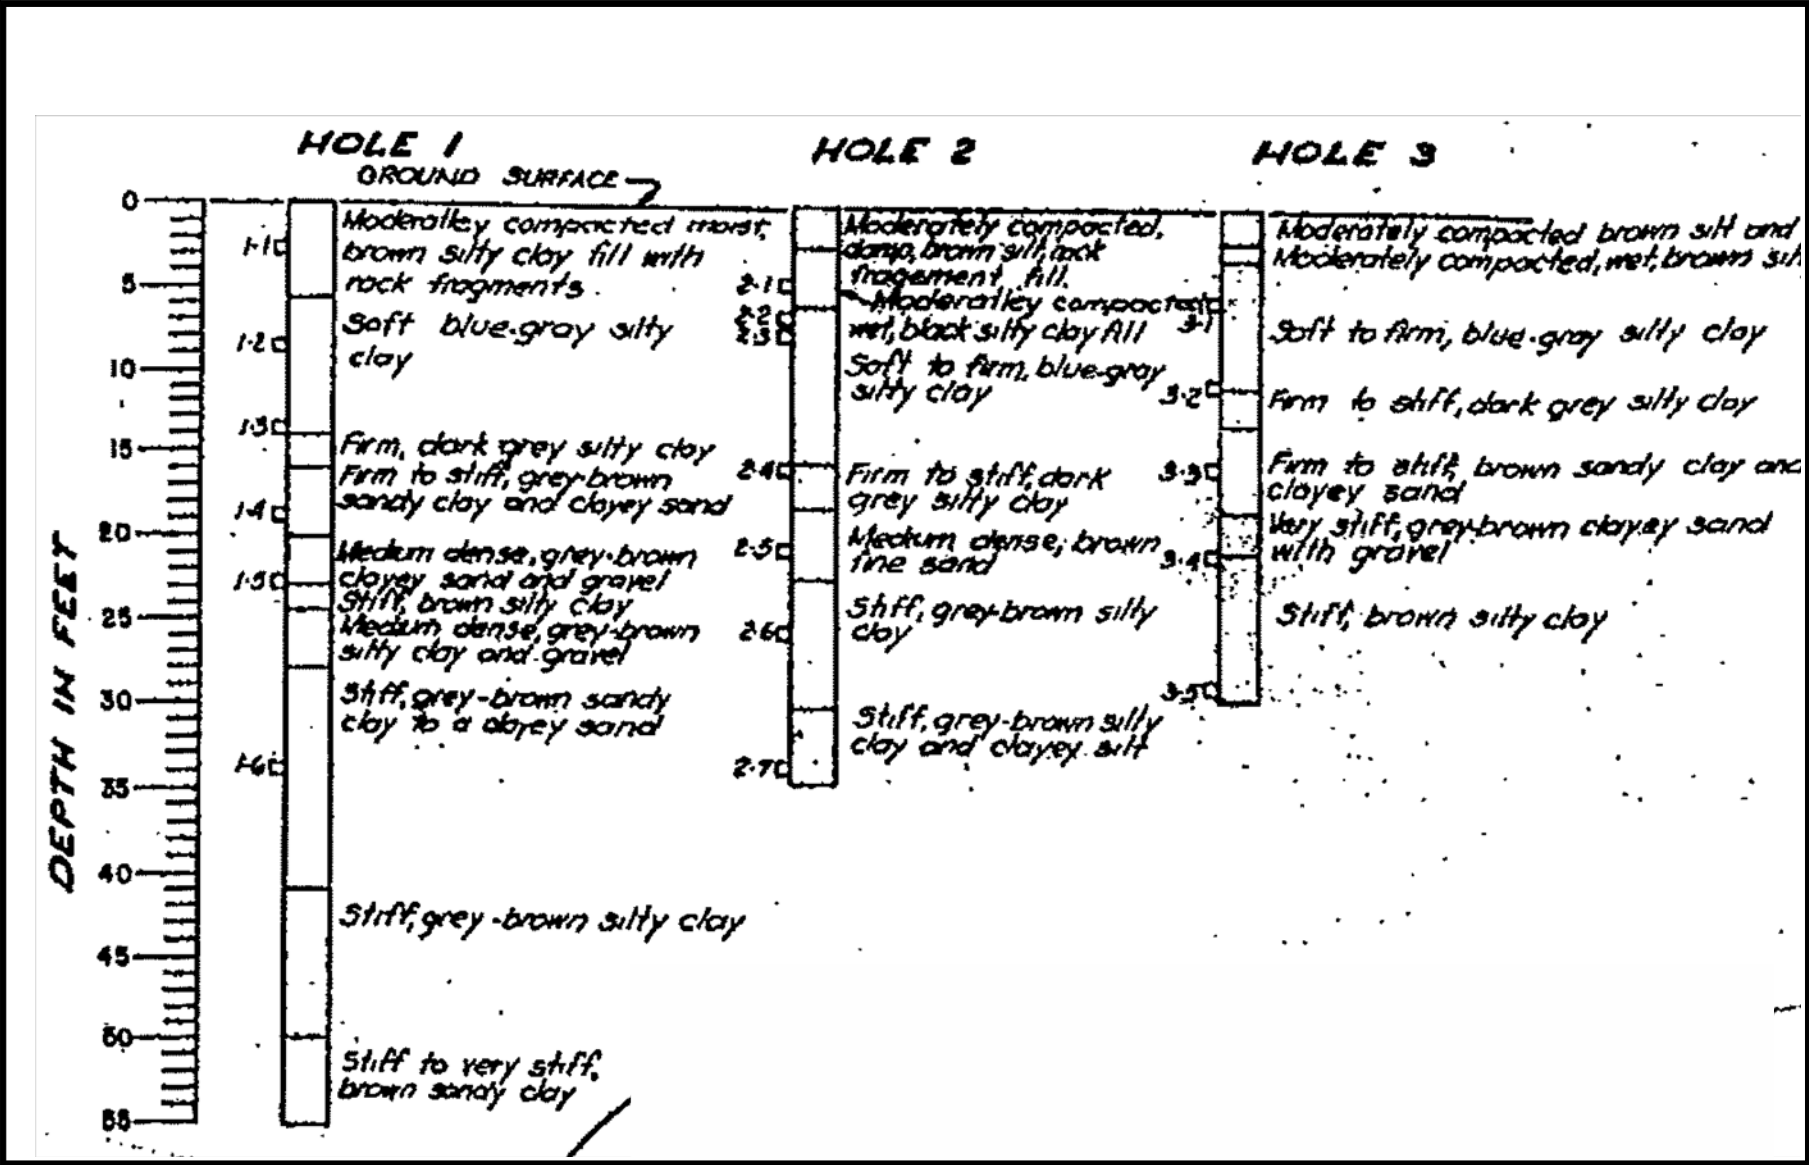 HOLE 1
GROUND SURFACE
HOLE 2
HOLE 3
DEPTH IN FEET
0
5
10
15
20
25
30
35
40
45
50
55
1-1
1-2
1-3
1-4
1-5
1-6
Moderatley compacted moist,
brown silty clay fill with
rock fragments
Soft blue-gray silty
clay
Firm, dark grey silty clay
Firm to stiff, grey-brown
sandy clay and clayey sand
Medium dense, grey-brown
clayey sand and gravel
Stiff, brown silty clay
Medium dense, grey-brown
silty clay and gravel
Stiff, grey-brown sandy
clay to a clayey sand
Stiff, grey-brown silty clay
Stiff to very stiff,
brown sandy clay
2-1
2-2
2-3
2-4
2-5
2-6
2-7
Moderately compacted,
damp, brown silt, rock
fragement fill.
Moderatley compacted
wet, black silty clay fill
Soft to firm, blue-gray
silty clay
Firm to stiff, dark
grey silty clay
Medium dense, brown
fine sand
Stiff, grey-brown silty
clay
Stiff, grey-brown silty
clay and clayey silt
3-1
3-2
3-3
3-4
3-5
Moderately compacted brown silt and
Moderately compacted, wet, brown
Soft to firm, blue-gray silty clay
Firm to stiff, dark grey silty clay
Firm to stiff, brown sandy clay and
clayey sand
Very stiff, grey-brown clayey sand
with gravel
Stiff, brown silty clay